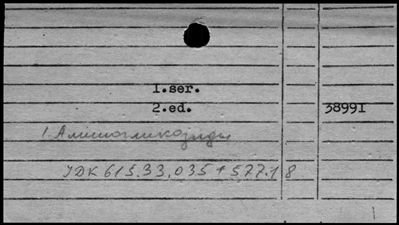 1.ser.
2.ed. 38991
1. Аминогликозиди
УДК 615.33.035+577.18